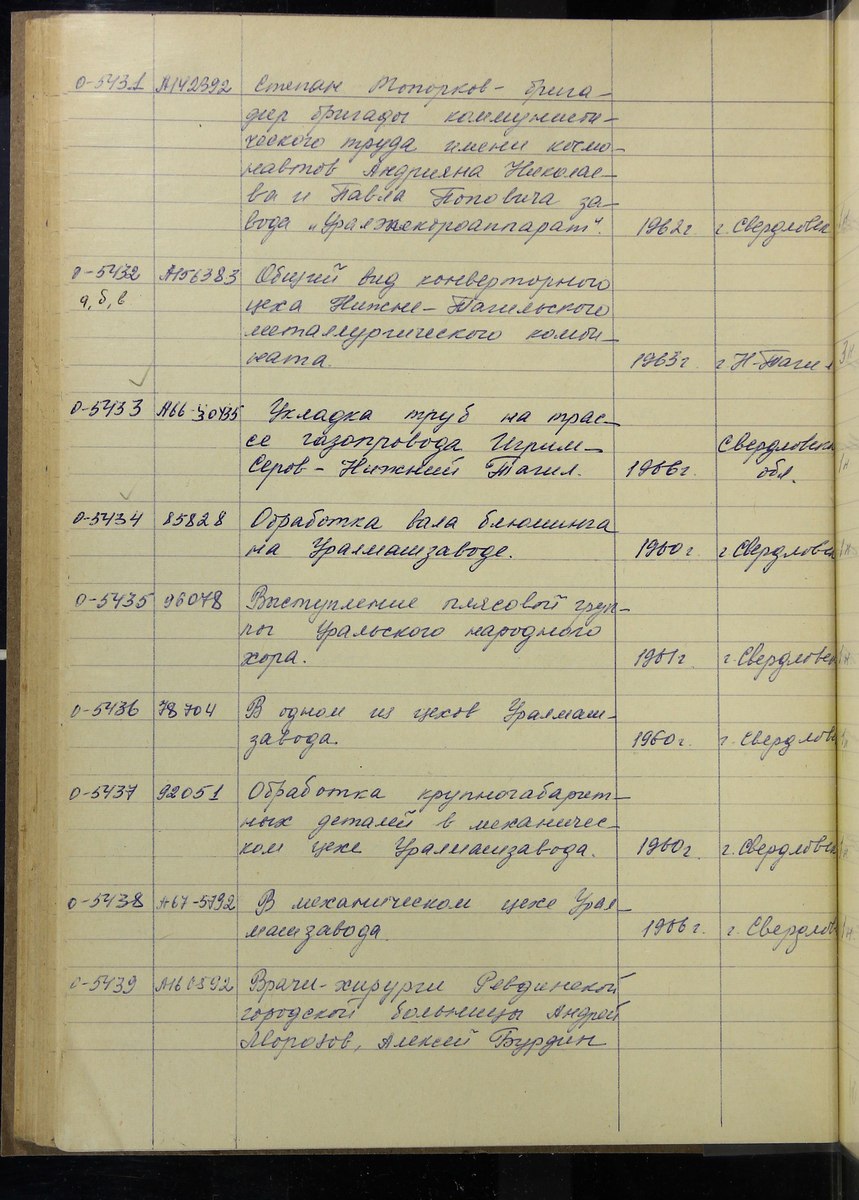 0-5431 А142392 Степан Топорков - брига-
дир бригады коммунисти-
ческого труда имени космо-
навтов Андрияна Николае-
ва и Павла Поповича за-
вода „Уралэлектроаппарат". 1962г. г. Свердловск
0-5432 А156383 Общий вид конверторного
а, б, в цеха Нижне-Тагильского
металлургического комби-
ната. 1963г. г Н-Тагил
0-5433 А66-30435 Укладка труб на трас-
се газопровода Игрим- Свердловск
Серов - Нижний Тагил. 1966г. обл.
0-5434 85828 Обработка вала блюминга
на Уралмашзаводе. 1960г. г Свердловск
0-5435 96078 Выступление плясовой груп-
пы Уральского народного
хора. 1961г. г. Свердловск
0-5436 78704 В одном из цехов Уралмаш-
завода. 1960г. г. Свердлов
0-5437 92051 Обработка крупногабарит-
ных деталей в механичес-
ком цехе Уралмашзавода. 1960г. г. Свердловск
0-5438 А67-5792 В механическом цехе Урал-
машзавода. 1966г. г. Свердлов
0-5439 А160592 Врачи-хирурги Ревдинской
городской больницы Андрей
Морозов, Алексей Бурдин